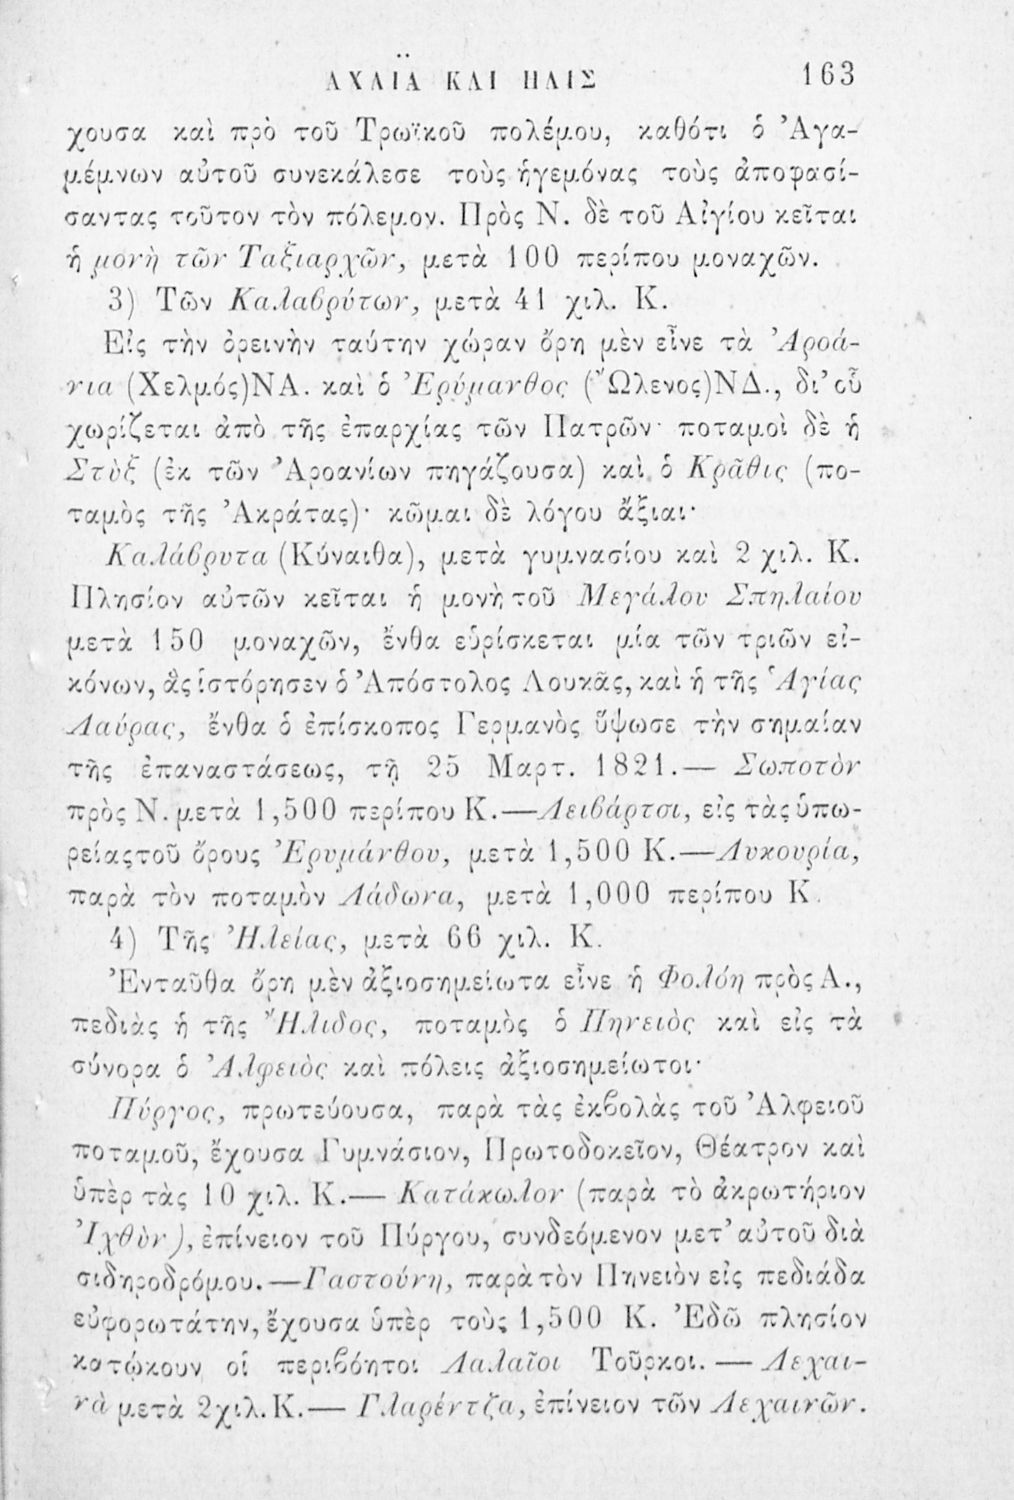 ΑΧΑΪΑ ΚΑΙ ΗΛΙΣ 163
χουσα καὶ πρὸ τοῦ Τρωϊκοῦ πολέμου, καθότι ὁ Ἀγα-
μέμνων αὐτοῦ συνεκάλεσε τοὺς ἡγεμόνας τοὺς ἀποφασί-
σαντας τοῦτον τὸν πόλεμον. Πρὸς Ν. δὲ τοῦ Αἰγίου κεῖται
ἡ μονὴ τῶν Ταξιαρχῶν, μετὰ 100 περίπου μοναχῶν.
3) Τῶν Καλαβρύτων, μετὰ 41 χιλ. Κ.
Εἰς τὴν ὀρεινὴν ταύτην χώραν ὄρη μὲν εἶνε τὰ Ἀροά-
νια (Χελμός)ΝΑ. καὶ ὁ Ἐρύμανθος (Ὤλενος)ΝΔ., δι' οὗ
χωρίζεται ἀπὸ τῆς ἐπαρχίας τῶν Πατρῶν· ποταμοὶ δὲ ἡ
Στὺξ (ἐκ τῶν Ἀροανίων πηγάζουσα) καὶ ὁ Κρᾶθις (πο-
ταμὸς τῆς Ἀκράτας)· κῶμαι δὲ λόγου ἄξιαι·
Καλάβρυτα (Κύναιθα), μετὰ γυμνασίου καὶ 2 χιλ. Κ.
Πλησίον αὐτῶν κεῖται ἡ μονὴ τοῦ Μεγάλου Σπηλαίου
μετὰ 150 μοναχῶν, ἔνθα εὑρίσκεται μία τῶν τριῶν εἰ-
κόνων, ἃς ἱστόρησεν ὁ Ἀπόστολος Λουκᾶς, καὶ ἡ τῆς Ἁγίας
Λαύρας, ἔνθα ὁ ἐπίσκοπος Γερμανὸς ὕψωσε τὴν σημαίαν
τῆς ἐπαναστάσεως, τῇ 25 Μαρτ. 1821.— Σωποτὸν
πρὸς Ν. μετὰ 1,500 περίπου Κ.—Λειβάρτσι, εἰς τὰς ὑπω-
ρείας τοῦ ὄρους Ἐρυμάνθου, μετὰ 1,500 Κ.—Λυκουρία,
παρὰ τὸν ποταμὸν Λάδωνα, μετὰ 1,000 περίπου Κ.
4) Τῆς Ἠλείας, μετὰ 66 χιλ. Κ.
Ἐνταῦθα ὄρη μὲν ἀξιοσημείωτα εἶνε ἡ Φολόη πρὸς Α.,
πεδιὰς ἡ τῆς Ἤλιδος, ποταμὸς ὁ Πηνειὸς καὶ εἰς τὰ
σύνορα ὁ Ἀλφειὸς καὶ πόλεις ἀξιοσημείωτοι·
Πύργος, πρωτεύουσα, παρὰ τὰς ἐκβολὰς τοῦ Ἀλφειοῦ
ποταμοῦ, ἔχουσα Γυμνάσιον, Πρωτοδοκεῖον, Θέατρον καὶ
ὑπὲρ τὰς 10 χιλ. Κ.— Κατάκωλον (παρὰ τὸ ἀκρωτήριον
Ἰχθὺν), ἐπίνειον τοῦ Πύργου, συνδεόμενον μετ' αὐτοῦ διὰ
σιδηροδρόμου.—Γαστούνη, παρὰ τὸν Πηνειὸν εἰς πεδιάδα
εὐφορωτάτην, ἔχουσα ὑπὲρ τοὺς 1,500 Κ. Ἐδῶ πλησίον
κατῴκουν οἱ περιβόητοι Λαλαῖοι Τοῦρκοι. — Λεχαι-
νὰ μετὰ 2 χιλ. Κ.— Γλαρέντζα, ἐπίνειον τῶν Λεχαινῶν.